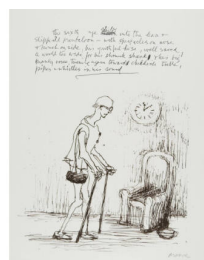 The sixth age shifts into the lean &
slipper'd Pantaloon – with spectacles on nose
& pouch on side. His youthful hose, well saved,
a world too wide for his shrunk shank & his big
manly voice, turning again toward childish treble,
pipes & whistles in his sound